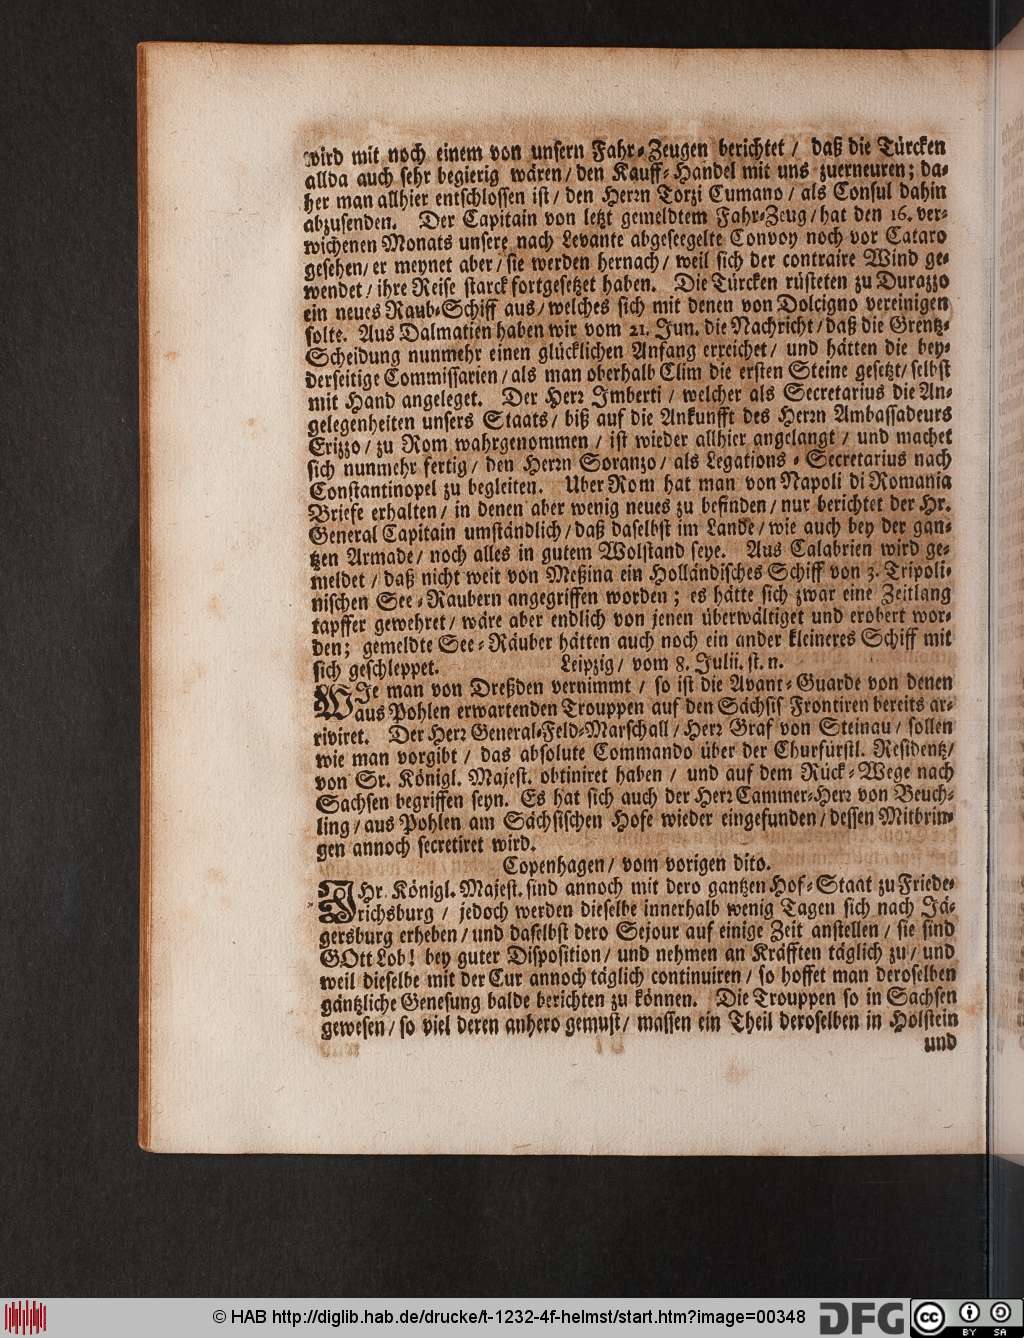 wird mit noch einem von unsern Fahr-Zeugen berichtet / daß die Türcken
allda auch sehr begierig wären / den Kauff-Handel mit uns zuerneuren; da-
her man allhier entschlossen ist / den Herrn Torzi Cumano / als Consul dahin
abzusenden. Der Capitain von letzt gemeldtem Fahr-Zeug / hat den 16. ver-
wichenen Monats unsere nach Levante abgeseegelte Convoy noch vor Cataro
gesehen / er meynet aber / sie werden hernach / weil sich der contraire Wind ge-
wendet / ihre Reise starck fortgesetzet haben. Die Türcken rüsteten zu Durazzo
ein neues Raub-Schiff aus / welches sich mit denen von Dolcigno vereinigen
solte. Aus Dalmatien haben wir vom 21. Jun. die Nachricht / daß die Grentz-
Scheidung nunmehr einen glücklichen Anfang erreichet / und hätten die bey-
derseitige Commissarien / als man oberhalb Clim die ersten Steine gesetzt / selbst
mit Hand angeleget. Der Herr Imberti / welcher als Secretarius die An-
gelegenheiten unsers Staats / biß auf die Ankunfft des Herrn Ambassadeurs
Erizzo / zu Rom wahrgenommen / ist wieder allhier angelangt / und machet
sich nunmehr fertig / den Herrn Soranzo / als Legations-Secretarius nach
Constantinopel zu begleiten. Uber Rom hat man von Napoli di Romania
Briefe erhalten / in denen aber wenig neues zu befinden / nur berichtet der Hr.
General Capitain umständlich / daß daselbst im Lande / wie auch bey der gan-
tzen Armade / noch alles in gutem Wolstand seye. Aus Calabrien wird ge-
meldet / daß nicht weit von Meßina ein Holländisches Schiff von 3. Tripoli-
nischen See-Raubern angegriffen worden; es hätte sich zwar eine Zeitlang
tapffer gewehret / wäre aber endlich von jenen überwältiget und erobert wor-
den; gemeldte See-Räuber hätten auch noch ein ander kleineres Schiff mit
sich geschleppet. Leipzig / vom 8. Julii. st. n.
WIe man von Dreßden vernimmt / so ist die Avant-Guarde von denen
aus Pohlen erwartenden Trouppen auf den Sächsis Frontiren bereits ar-
riviret. Der Herr General-Feld-Marschall / Herr Graf von Steinau / sollen
wie man vorgibt / das absolute Commando über der Churfürstl. Residentz /
von Sr. Königl. Majest. obtiniret haben / und auf dem Rück-Wege nach
Sachsen begriffen seyn. Es hat sich auch der Herr Cammer-Herr von Beuch-
ling / aus Pohlen am Sächsischen Hofe wieder eingefunden / dessen Mitbrin-
gen annoch secretiret wird.
Copenhagen / vom vorigen dito.
IHr. Königl. Majest. sind annoch mit dero gantzen Hof-Staat zu Friede-
richsburg / jedoch werden dieselbe innerhalb wenig Tagen sich nach Jä-
gersburg erheben / und daselbst dero Sejour auf einige Zeit anstellen / sie sind
GOtt Lob! bey guter Disposition / und nehmen an Kräfften täglich zu / und
weil dieselbe mit der Cur annoch täglich continuiren / so hoffet man deroselben
gäntzliche Genesung balde berichten zu können. Die Trouppen so in Sachsen
gewesen / so viel deren anhero gemust / massen ein Theil deroselben in Holstein
und
© HAB http://diglib.hab.de/drucke/t-1232-4f-helmst/start.htm?image=00348
DFG
cc
BY SA